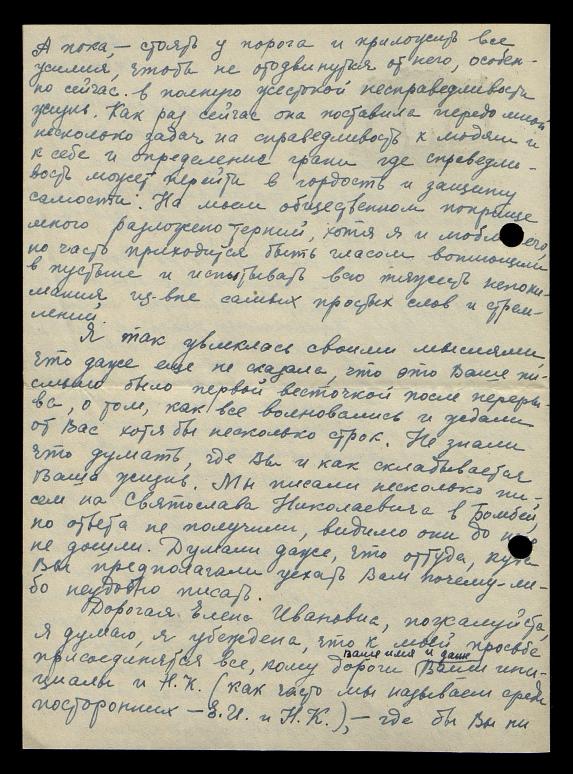 А пока, – стоять у порога и приложить все
усилия, чтобы не отодвинуться от него, особен-
но сейчас в полную жестокой несправедливости
жизнь. Как раз сейчас она поставила передо мной
несколько задач на справедливость к людям и
к себе и определение грани где справедли-
вость может перейти в гордость и защиту
самости. На моем общественном поприще
много разложено терний, хотя я и люблю его
но часто приходится быть гласом вопиющим
в пустыне и испытывать всю тяжесть непони-
мания из-вне самых простых слов и стрем-
лений.
Я так увлеклась своими мыслями,
что даже еще не сказала, что это Ваше пи-
сьмо было первой весточкой после переры-
ва, о том, как все волновались и ждали
от Вас хотя бы несколько строк. Не знали
что думать, где Вы и как складывается
Ваша жизнь. Мы писали несколько пи-
сем на Святослава Николаевича в Бомбей,
но ответа не получили, видимо они до
не дошли. Думали даже, что оттуда, куда
Вы предполагали уехать Вам почему-ли-
бо неудобно писать.
Дорогая Елена Ивановна, пожалуйста,
я думаю, я убеждена, что к моей просьбе
присоединятся все, кому дороги Ваше имя и даже Ваши ини-
циалы и Н.К. (как часто мы называем среди
посторонних – Е.И. и Н.К.), – где бы Вы ни